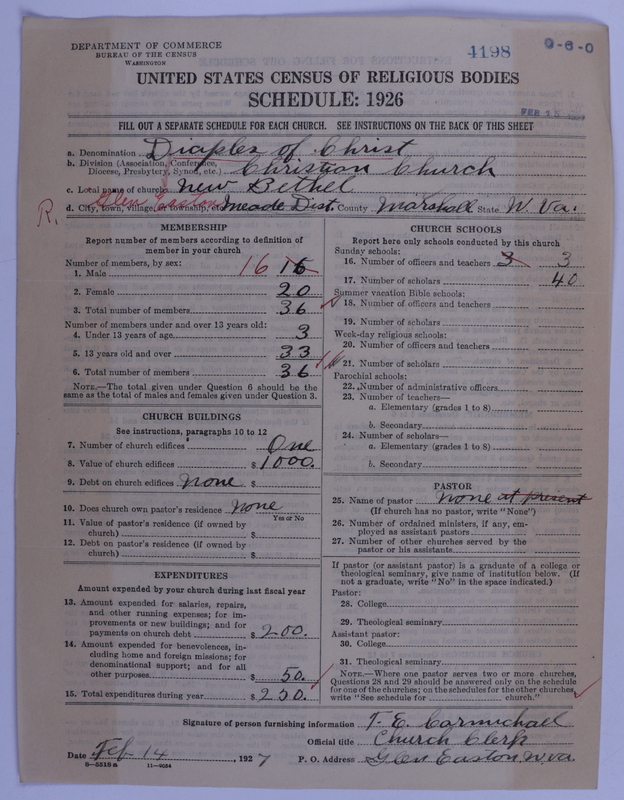 DEPARTMENT OF COMMERCE
BUREAU OF THE CENSUS
WASHINGTON
4198
UNITED STATES CENSUS OF RELIGIOUS BODIES
SCHEDULE: 1926
FILL OUT A SEPARATE SCHEDULE FOR EACH CHURCH. SEE INSTRUCTIONS ON THE BACK OF THIS SHEET
a. Denomination Diciples of Christ
b. Division (Association, Conference,
Diocese, Presbytery, Synod, etc.) Christian Church
c. Local name of church New Bethel
R. Glen Easton
d. City, town, village, or township, etc. Meade Dist. County Marshall State W. Va.
MEMBERSHIP
Report number of members according to definition of
member in your church
Number of members, by sex:
1. Male 16 16
2. Female 20
3. Total number of members 36
Number of members under and over 13 years old:
4. Under 13 years of age 3
5. 13 years old and over 33
6. Total number of members 36
NOTE.—The total given under Question 6 should be the
same as the total of males and females given under Question 3.
CHURCH BUILDINGS
See instructions, paragraphs 10 to 12
7. Number of church edifices One
8. Value of church edifices $ 1000.
9. Debt on church edifices none $
10. Does church own pastor's residence none
Yes or No
11. Value of pastor's residence (if owned by
church) $
12. Debt on pastor's residence (if owned by
church) $
EXPENDITURES
Amount expended by your church during last fiscal year
13. Amount expended for salaries, repairs,
and other running expenses; for im-
provements or new buildings; and for
payments on church debt $ 200.
14. Amount expended for benevolences, in-
cluding home and foreign missions; for
denominational support; and for all
other purposes $ 50.
15. Total expenditures during year $ 250.
CHURCH SCHOOLS
Report here only schools conducted by this church
Sunday schools:
16. Number of officers and teachers 3 3
17. Number of scholars 40
Summer vacation Bible schools:
18. Number of officers and teachers
19. Number of scholars
Week-day religious schools:
20. Number of officers and teachers
21. Number of scholars
Parochial schools:
22. Number of administrative officers
23. Number of teachers—
a. Elementary (grades 1 to 8)
b. Secondary
24. Number of scholars—
a. Elementary (grades 1 to 8)
b. Secondary
PASTOR
25. Name of pastor none at present
(If church has no pastor, write "None")
26. Number of ordained ministers, if any, em-
ployed as assistant pastors
27. Number of other churches served by the
pastor or his assistants
If pastor (or assistant pastor) is a graduate of a college or
theological seminary, give name of institution below. (If
not a graduate, write "No" in the space indicated.)
Pastor:
28. College
29. Theological seminary
Assistant pastor:
30. College
31. Theological seminary
NOTE.—Where one pastor serves two or more churches,
Questions 28 and 29 should be answered only on the schedule
for one of the churches; on the schedules for the other churches,
write "See schedule for church."
Signature of person furnishing information T. E. Carmichael
Official title Church Clerk
Date Feb 14, 1927 P. O. Address Glen Easton W. Va.
8—5518a 11—9054